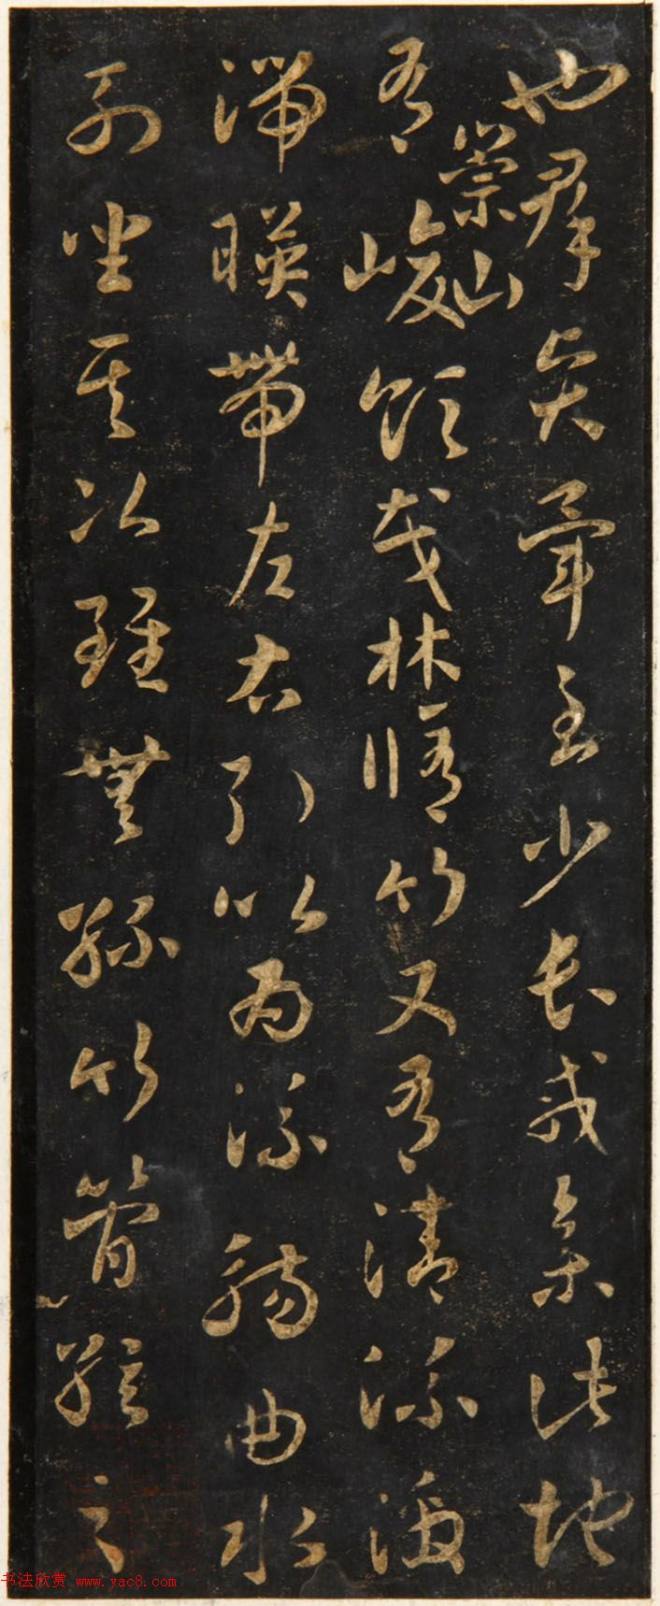 也羣賢畢至少長咸集此地
有崇山峻領茂林脩竹又有清流激
湍暎帶左右引以為流觴曲水
列坐其次雖無絲竹管絃之
书法欣赏 www.yac8.com